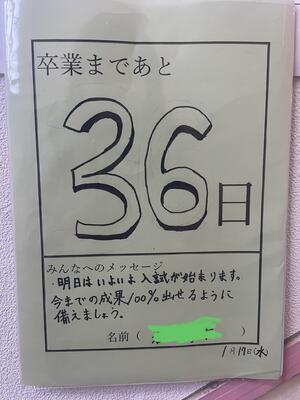 卒業まであと
36日
みんなへのメッセージ
・明日はいよいよ入試が始まります。
今までの成果100%出せるように
備えましょう。
名前（　　　）
1月19日(水)